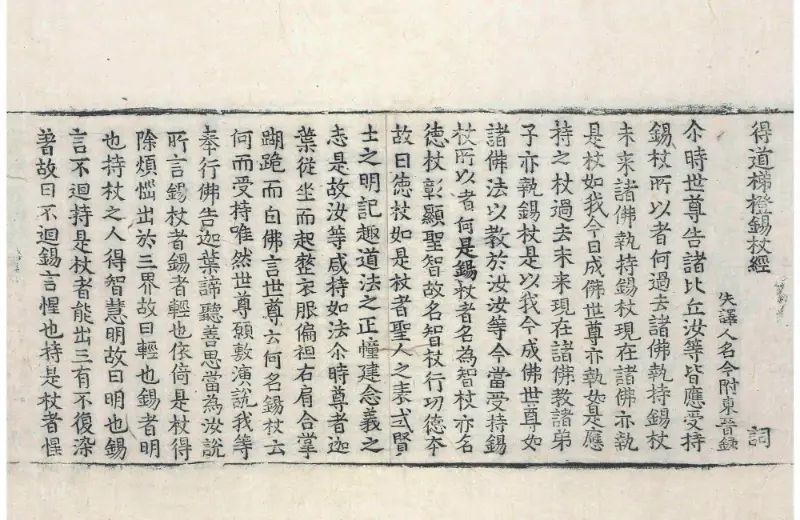 得道梯橙錫杖經 詞
失譯人名今附東晉録
尒時世尊告諸比丘汝等皆應受持
錫杖所以者何過去諸佛執持錫杖
未来諸佛執持錫杖現在諸佛亦執
是杖如我今日成佛世尊亦執如是應
持之杖過去未来現在諸佛教諸弟
子亦執錫杖是以我今成佛世尊如
諸佛法以教於汝汝等今當受持錫
杖所以者何是錫杖者名為智杖亦名
德杖彰顯聖智故名智杖行功德本
故曰德杖如是杖者聖人之表式賢
士之明記趣道法之正幢建念義之
志是故汝等咸持如法尒時尊者迦
葉從坐而起整衣服偏袒右肩合掌
𨄔跪而白佛言世尊云何名錫杖云
何而受持唯然世尊願敷演說我等
奉行佛告迦葉諦聽善思當為汝說
所言錫杖者錫者輕也依倚是杖得
除煩惱出於三界故曰輕也錫者明
也持杖之人得智慧明故曰明也錫
言不迴持是杖者能出三有不復染
著故曰不迴錫言惺也持是杖者惺